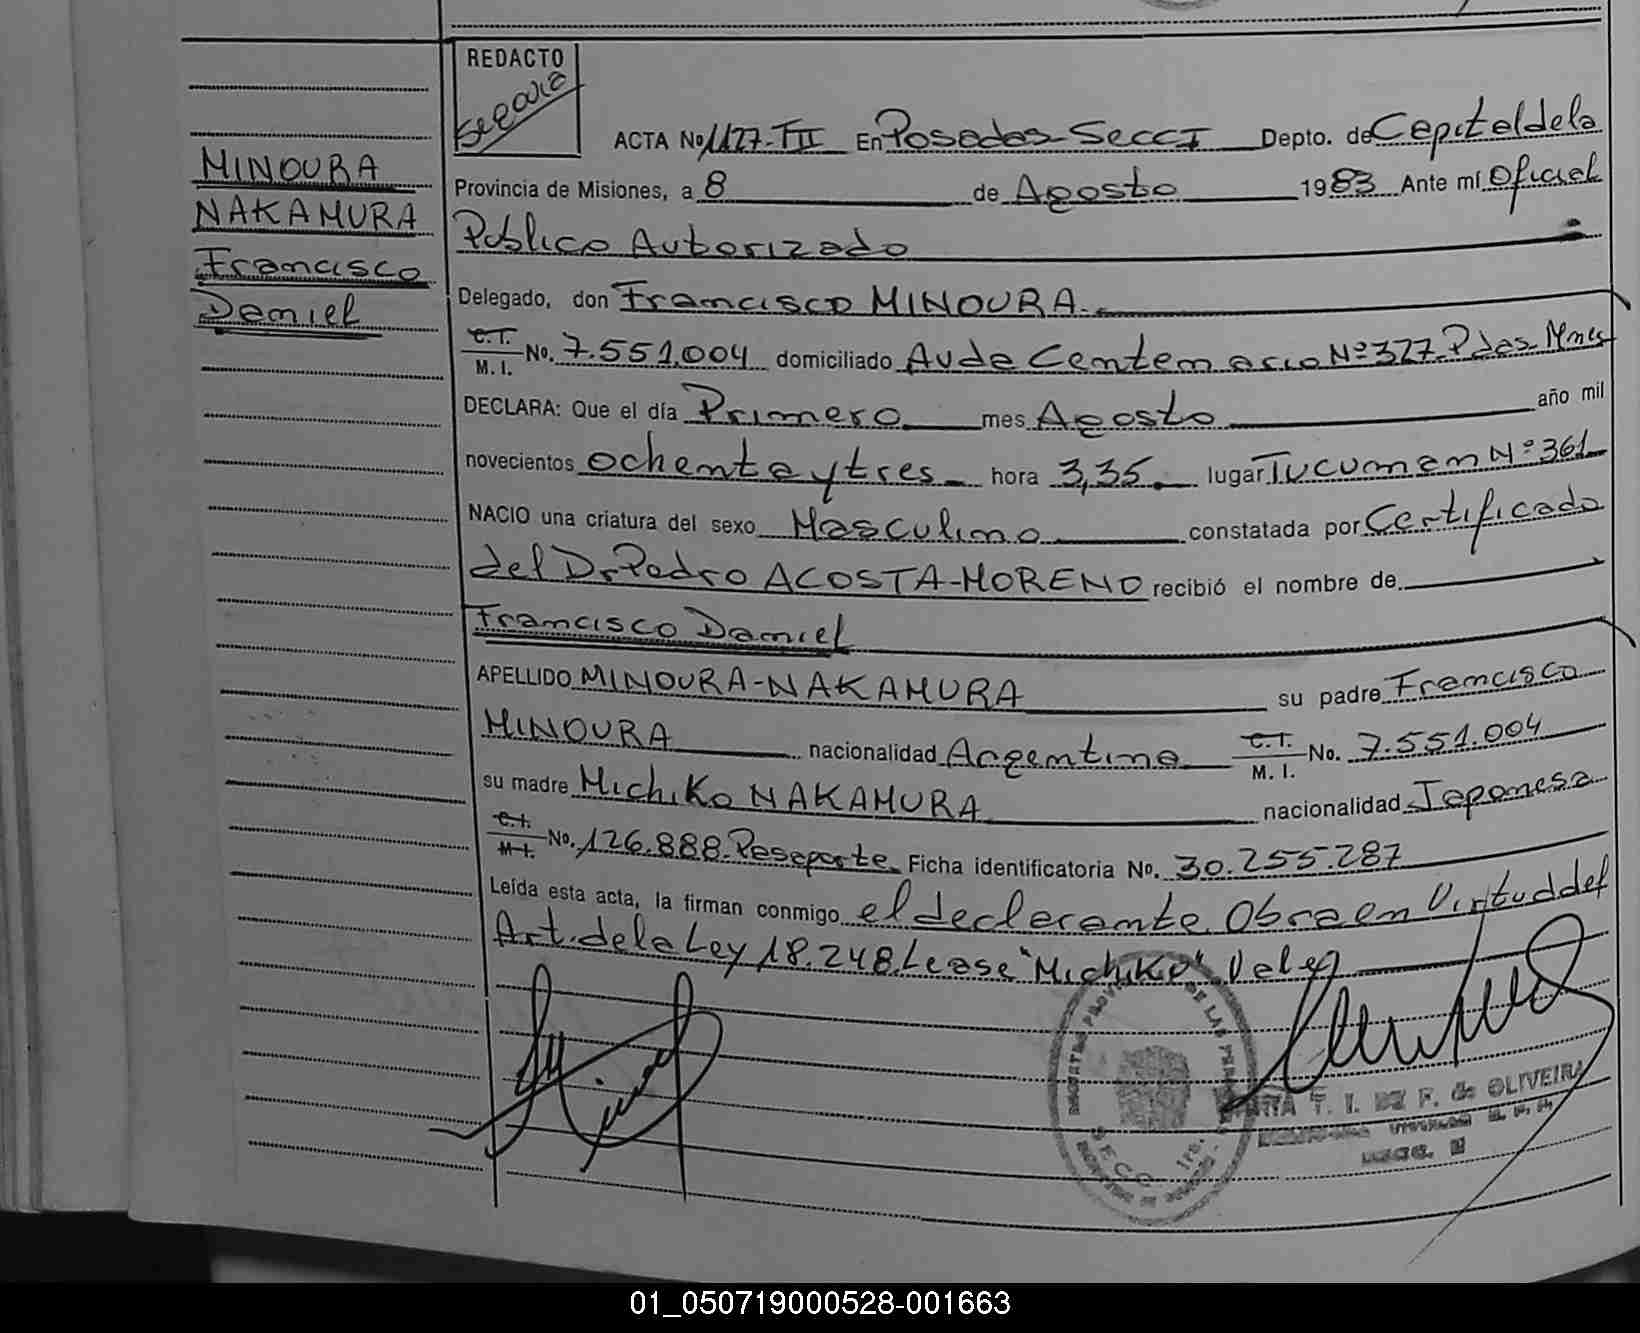 REDACTO
MINOURA
NAKAMURA
Francisco
Daniel
ACTA No 1127-TII En Posadas-Secc I Depto. de Capital de la
Provincia de Misiones, a 8 de Agosto 1983 Ante mí Oficial
Publico Autorizado
Delegado, don Francisco MINOURA.
C.I. M. I. No. 7.551.004 domiciliado Av de Centenario Nº 327-Pdas-Mnes
DECLARA: Que el día Primero mes Agosto año mil
novecientos ochenta y tres hora 3,35 lugar Tucuman Nº 361
NACIO una criatura del sexo Masculino constatada por Certificado
del Dr Pedro ACOSTA-MORENO recibió el nombre de
Francisco Daniel
APELLIDO MINOURA-NAKAMURA su padre Francisco
MINOURA nacionalidad Argentina C.I. M. I. No. 7.551.004
su madre Michiko NAKAMURA nacionalidad Japonesa
C.I. M.I. No. 126.888. Pasaporte Ficha identificatoria No. 30.255.287
Leída esta acta, la firman conmigo el declarante. Obra en Virtud del
Art. de la Ley 18.248. Lease "Michiko" Vale
T. I. F. de OLIVEIRA
SECC. 1ra.
01_050719000528-001663